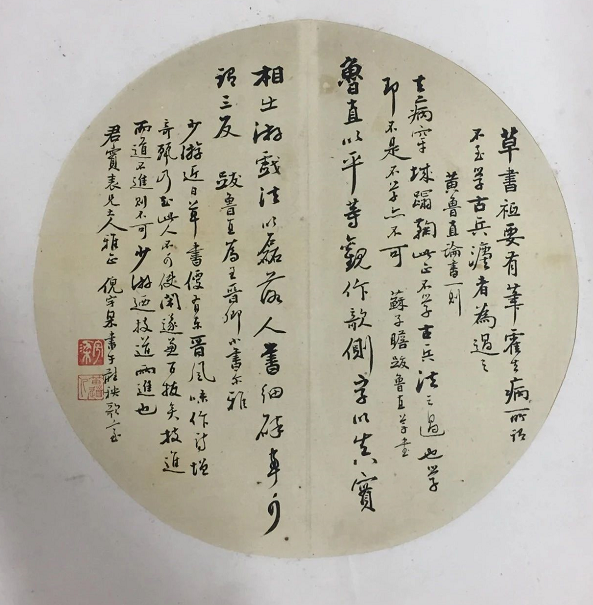 草書祇要有筆霍去病所謂
不至學古兵法者為過之
黃魯直論書一則
去病穿域蹋鞠此正不學古兵法之過也學
即不是不學亦不可 蘇子瞻跋魯直草書
魯直以平等觀作欹側字以真實
相出游戲法以磊落人書細碎事可
謂三反 跋魯直為王晉卿小書爾雅
少游近日草書便有東晉風味作詩增
奇麗乃知此人不可使閑遂兼百技矣技進
而道不進則不可少游迺技道兩進也
君實表兄大人雅正 倪